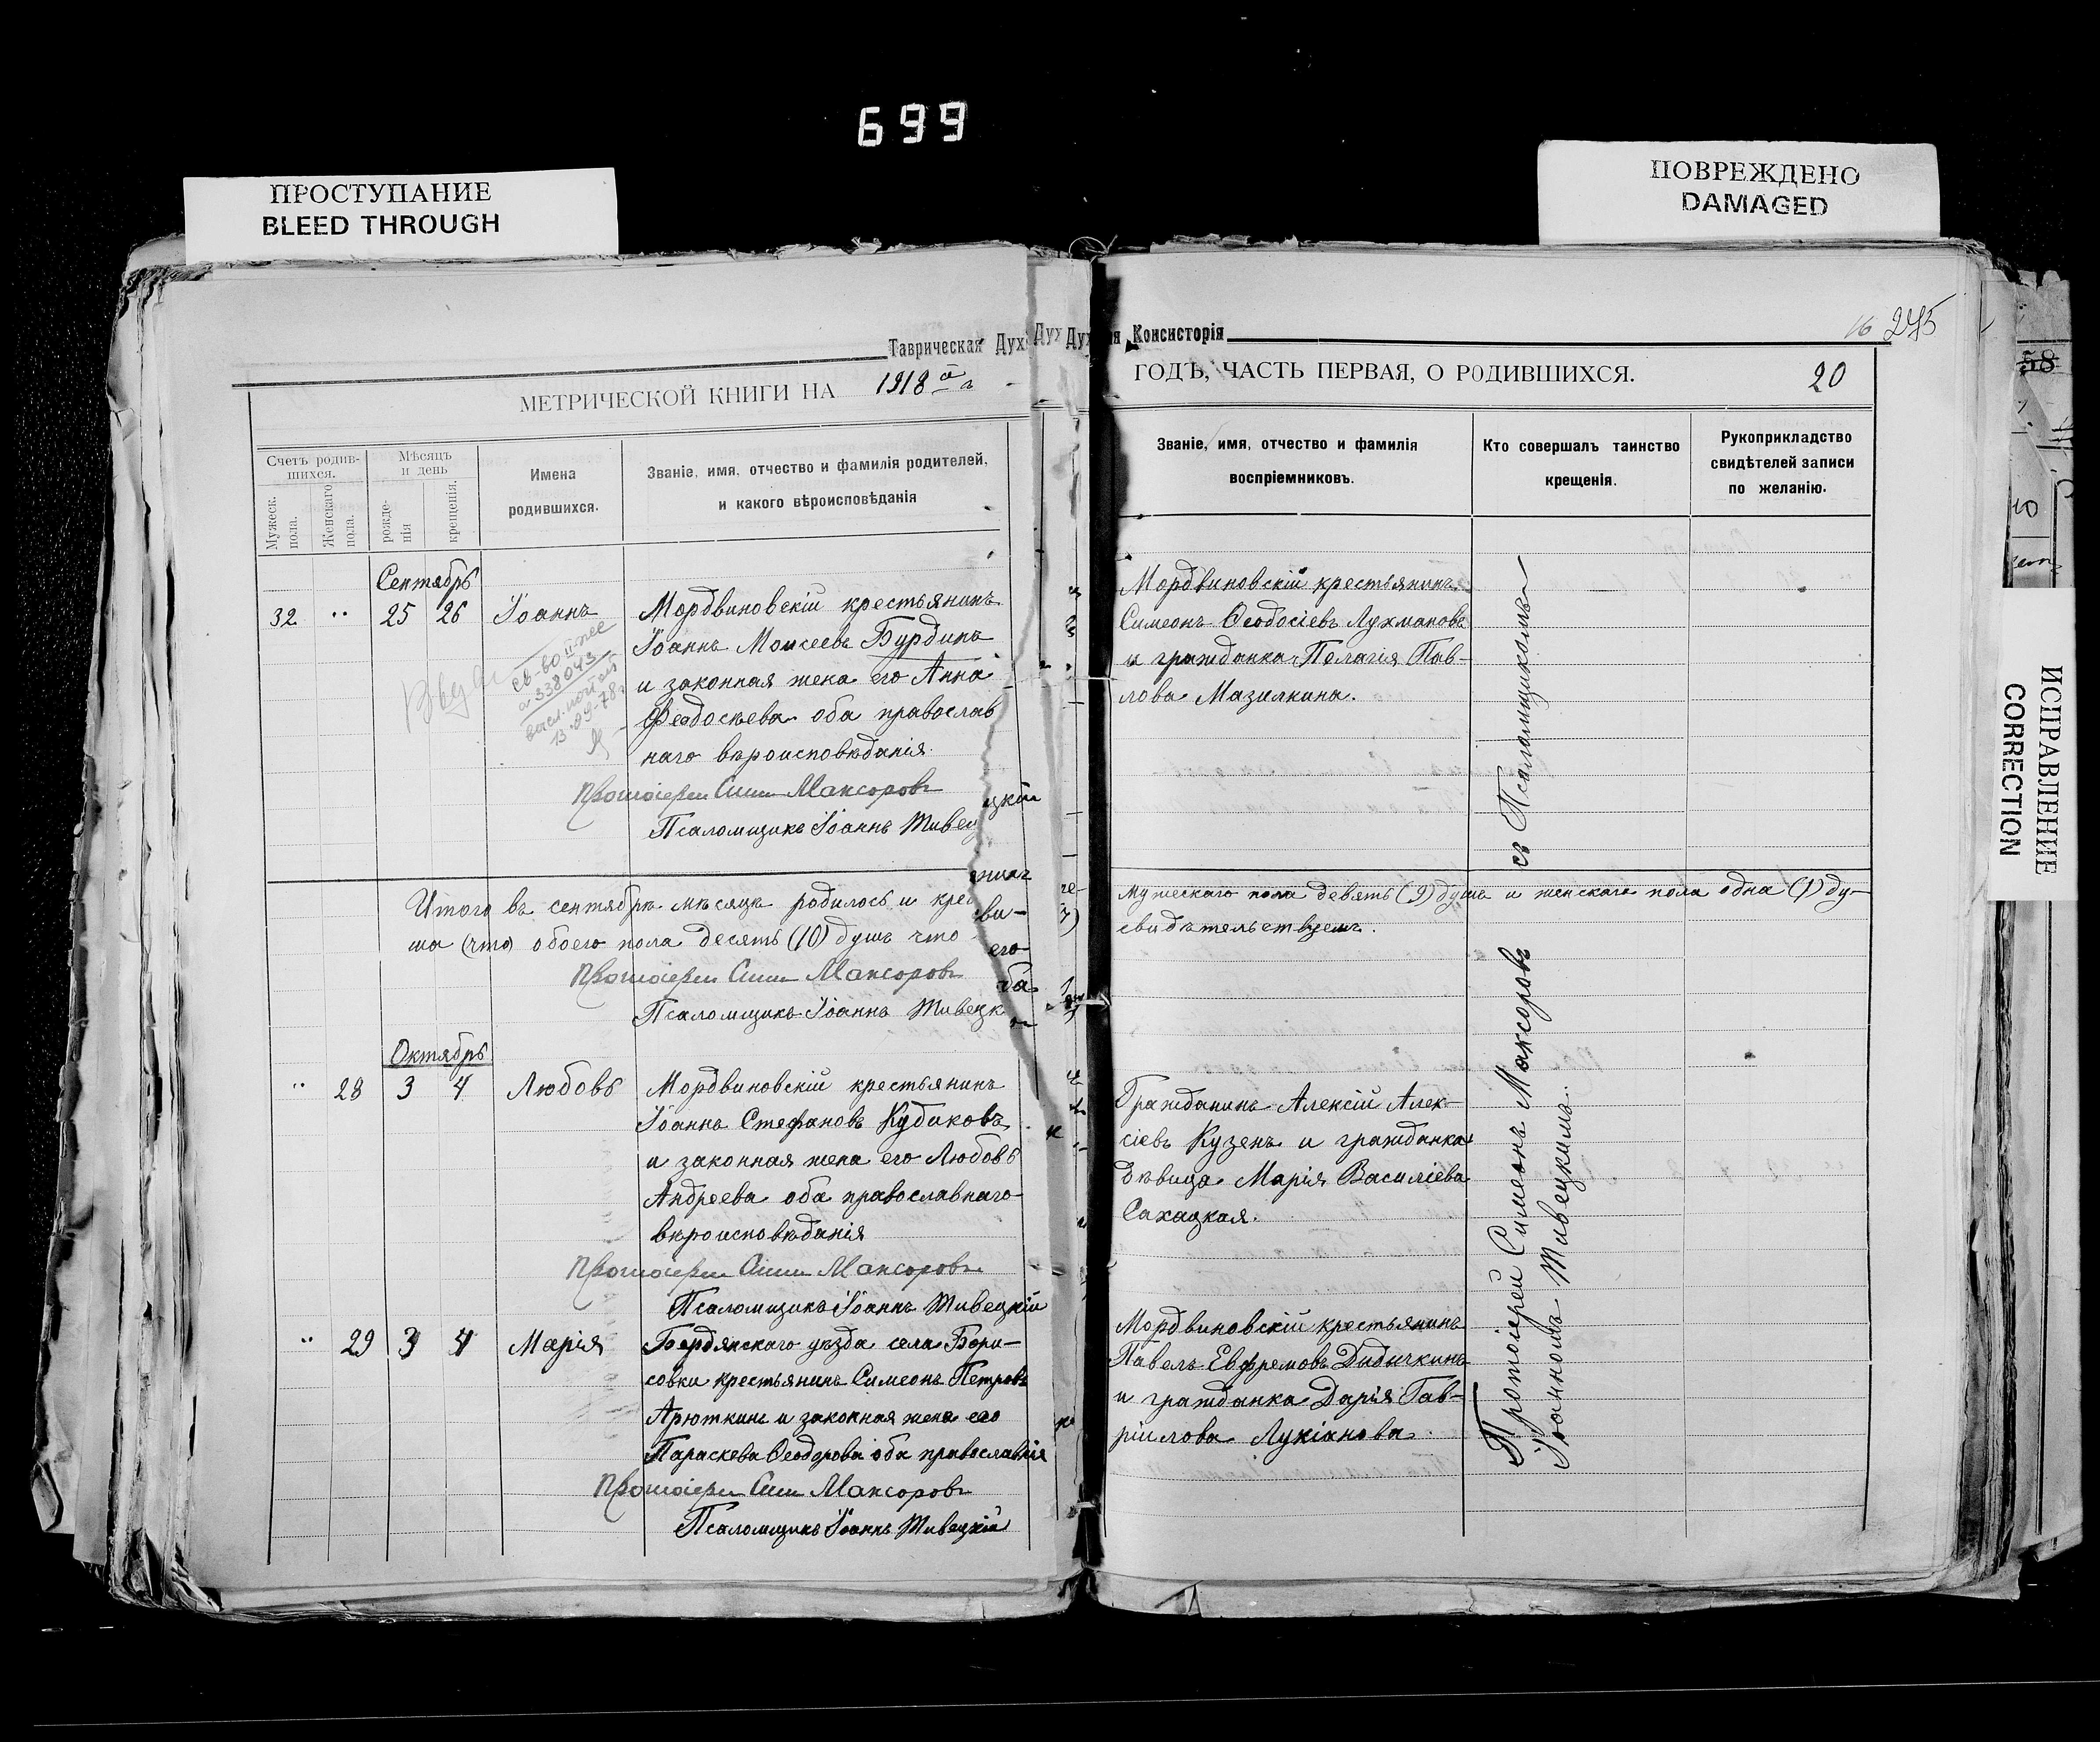 699
ПРОСТУПАНИЕ
BLEED THROUGH
ПОВРЕЖДЕНО
DAMAGED
ИСПРАВЛЕНИЕ
CORRECTION
Таврическая Дух
МЕТРИЧЕСКОЙ КНИГИ НА 1918 г
Счетъ родив-
шихся.
Мужеск.
пола.
Женскаго
пола.
Мѣсяцъ
и день
рожде-
нія
крещенія.
Имена
родившихся.
Званіе, имя, отчество и фамилія родителей,
и какого вѣроисповѣданія
Сентябрь
32 " 25 26 Іоаннъ
Мордвиновскій крестьянинъ
Іоаннъ Моисеевъ Бурдинъ
и законная жена его Анна
Феодосьева оба православ
наго вѣроисповѣданія
св-во
338043
13.09-78
Протоіерей Сим Максоровъ
Псаломщикъ Іоаннъ Живец
Итого въ сентябрѣ мѣсяцѣ родилось и кре
ша (что) обоего пола десять (10) душъ что
Протоіерей Сим Максоровъ
Псаломщикъ Іоаннъ Живецк
Октябрь
" 28 3 4 Любовь
Мордвиновскій крестьянинъ
Іоаннъ Стефановъ Кубиковъ
и законная жена его Любовь
Андреева оба православнаго
вѣроисповѣданія
Протоіерей Сим Максоровъ
Псаломщикъ Іоаннъ Живецкій
" 29 3 4 Марія
Бердянскаго уѣзда села Бори-
совки крестьянинъ Симеонъ Петровъ
Арюткинъ и законная жена его
Параскева Ѳеодорова оба православнія
Протоіерей Сим Максоровъ
Псаломщикъ Іоаннъ Живецкій
я Консисторія
16 275
ГОДЪ, ЧАСТЬ ПЕРВАЯ, О РОДИВШИХСЯ. 20
Званіе, имя, отчество и фамилія
воспріемниковъ.
Кто совершалъ таинство
крещенія.
Рукоприкладство
свидѣтелей записи
по желанію.
Мордвиновскій крестьянинъ
Симеонъ Ѳеодосіевъ Лухмановъ
и гражданка Пелагія Пав-
лова Мазилкина.
мужескаго пола девять (9) душъ и женскаго пола одна (1) ду-
свидѣтельствуемъ.
Гражданинъ Алексій Алек-
сіевъ Кузенъ и гражданка
дѣвица Марія Василіева
Сахацкая.
Мордвиновскій крестьянинъ
Павелъ Евфремовъ Дидычкинъ
и гражданка Дарія Гав-
ріилова Лукіанова.
Протоіерей Симеонъ Максоровъ съ Псаломщикомъ
Іоанномъ Живецкимъ.
58